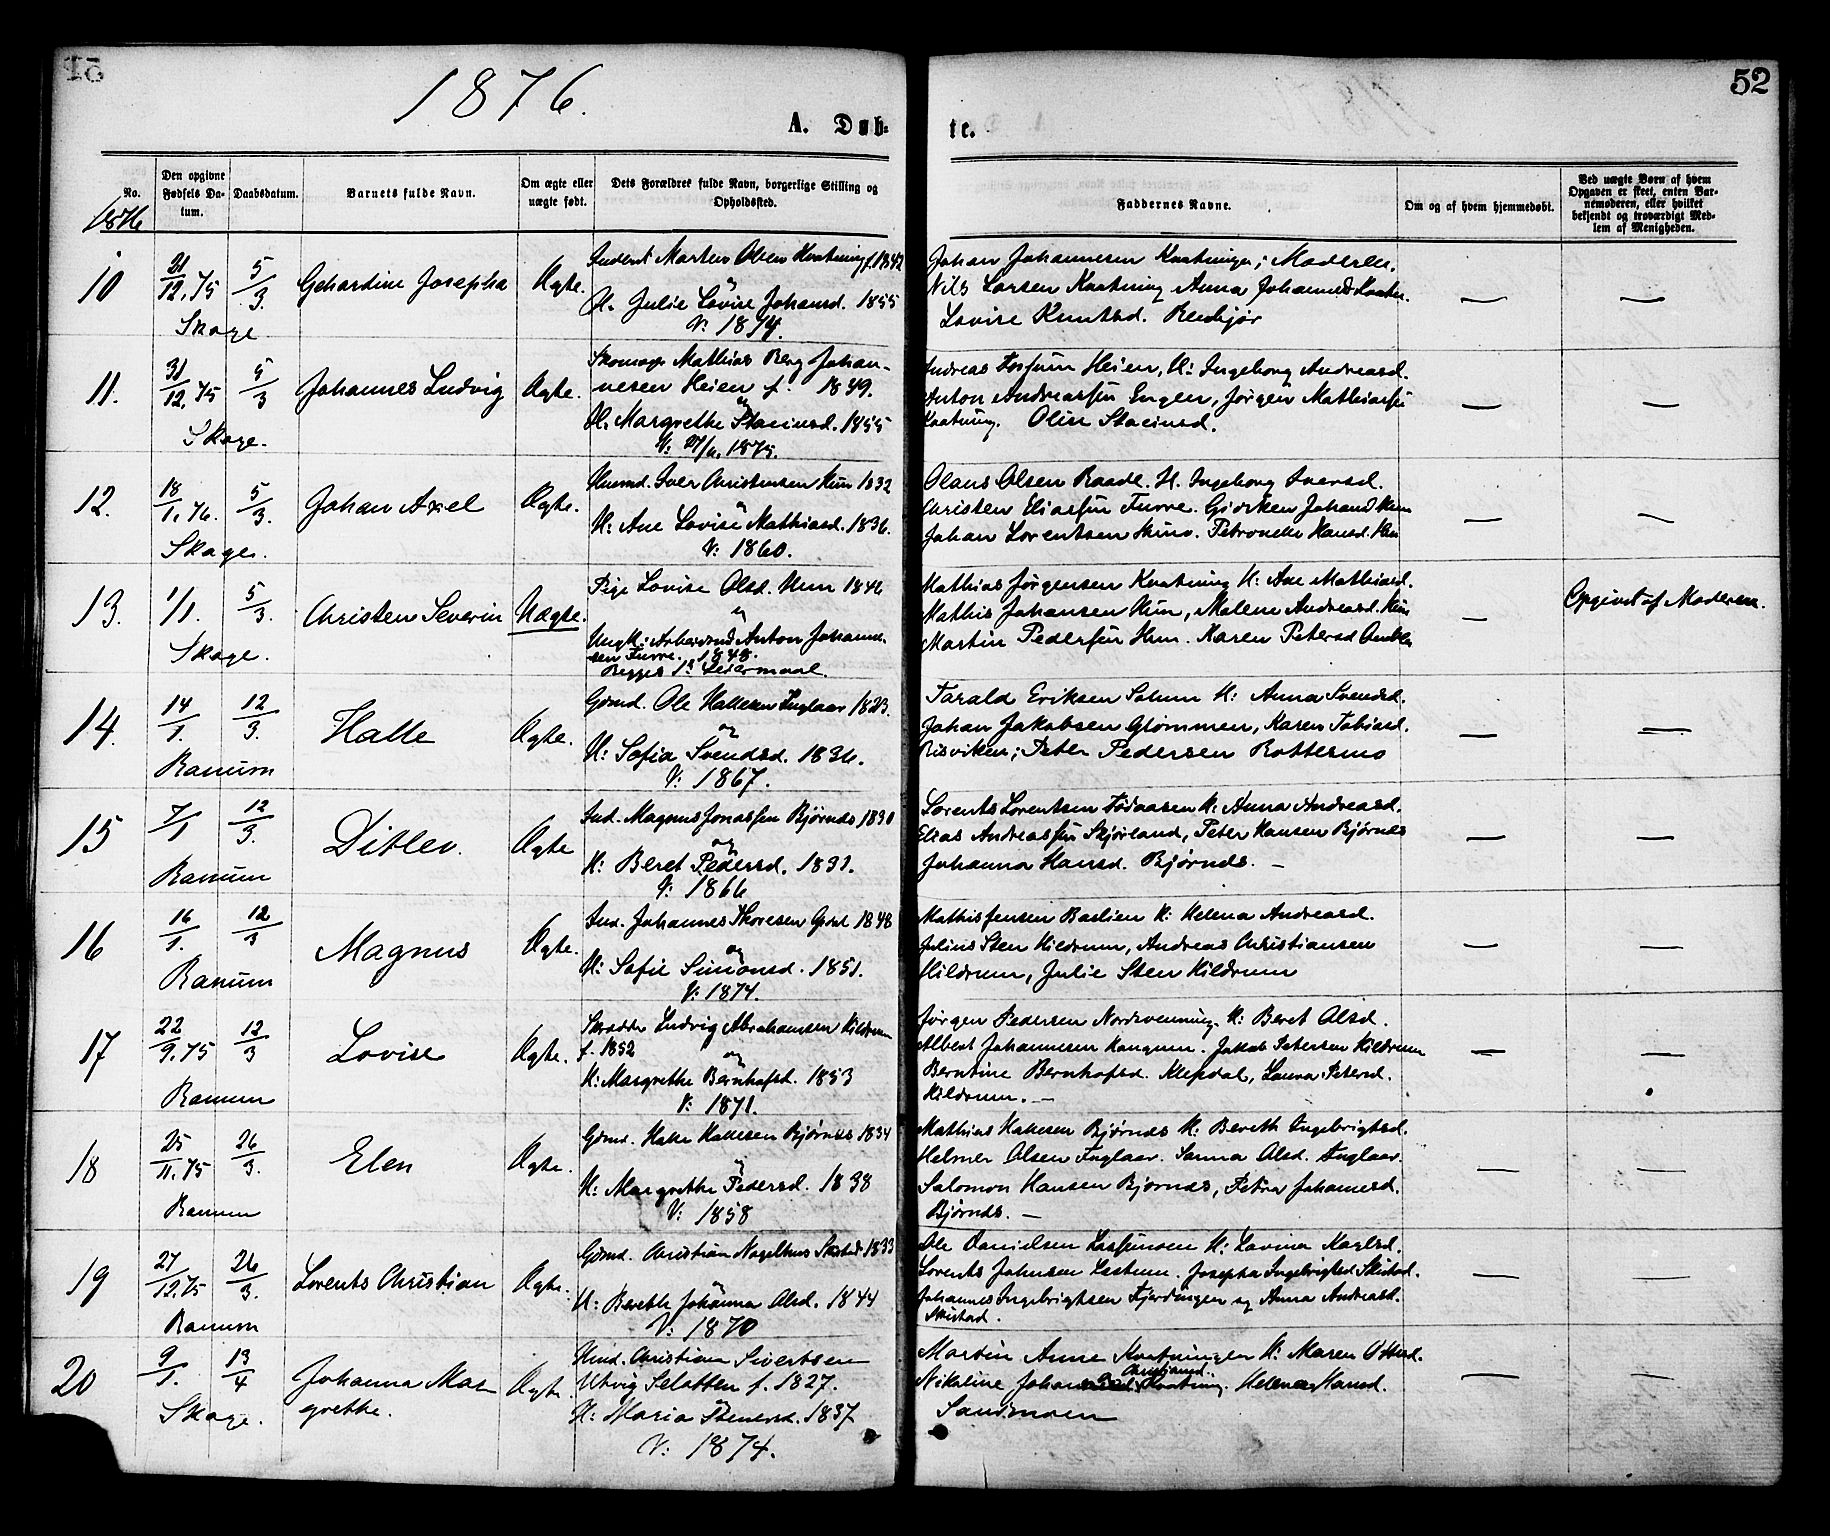 1876.
52
A. Døb-
te.
No.
Den opgivne Fødsels Da-tum.
Daabsdatum.
Barnets fulde Navn.
Om ægte eller uægte født.
Dets Forældres fulde Navn, borgerlige Stilling og Opholdssted.
Faddernes Navne.
Om og af hvem hjemmedøbt.
Ved uægte Børn af hvem Opgaven er skeet, enten Bar-nemoderen, eller hvilket bekjendt og troværdigt Med-lem af Menigheden.
1876
10
31/12.75
5/3.
Skage.
Gehardine Josepha
Ægte.
Morten Olsen Kvatning f. 1842
og
H. Julie Lovise Johansd. 1855
V: 1874.
Johan Johannesen Kvatningen; Moderen.
Nils Larsen Kvatning Anna
Lovise Knutsd.
—
—
11.
31/12.75
5/3
Skage.
Johannes Ludvig
Ægte.
Mathias Berg Johan-
nesen Heien f. 1849.
og
H. Margrethe 1855
1875.
Andreas Heien, H: Ingeborg Andreasd.
Anton Andreassen Engen, Jørgen Mathiassen
Kvatning. Oline
—
—
12.
18/1.76.
5/3.
Skage.
Johan Axel
Ægte.
Huusmd. Iver Christensen Hun 1832
og
H: Ane Lovise Mathiasd. 1836.
V: 1860.
Olaus Olsen H. Ingeborg Iversd.
Christen Eliassen Furre.
Johan Lorentsen Petronelle Hansd. Hun
—
—
13.
1/1.
5/3
Skage.
Christen Severin
Uægte.
Pige Lovise Olsd. Hun 1846
og
Anton Johanne-
sen Furre. 1848.
Begges 1ste Leiermaal.
Mathias Jørgensen Kvatning H: Ane Mathiasd.
Mathis Johansen Hun, Malene Andreasd. Hun
Martin Pedersen Hun. Karen Petersd
—
Opgivet af Moderen.
14.
14/1.
12/3.
Ranum
Halle
Ægte.
Gbmd. Ole Hallesen Fuglaar 1823.
og
H: Sofia Svendsd. 1836.
V: 1867.
Tarald Eriksen Solum H: Anna Svendsd.
Johan Jakobsen Glømmen, Karen Tobiasd.
Risviken; Peter Pedersen Rottesmo
—
—
15
7/1
12/3.
Ranum
Ditlev.
Ægte
Ind. Magnus Jonassen Bjørnes 1830
og
H: Beret Pedersd. 1831.
V: 1866
Lorents Lorentsen H: Anna Andreasd.
Elias Andreassen Skjørland, Peter Hansen Bjørnes
Johanna Hansd. Bjørnes. —
—
—
16
16/1.
12/3
Ranum
Magnus
Ægte.
Ind. Johannes Thoresen 1848
og
H: Sofie Simonsd. 1851.
V: 1874.
Mathis Jensen Barlien H: Helena Andreasd.
Julius Sten Hildrum, Andreas Christiansen
Hildrum, Julie Sten Hildrum
—
—
17
22/9.75
12/3
Ranum
Lovise
Ægte.
Skrædder Ludvig Abrahamsen Hildrum
f. 1852
og
H: Margrethe Bernhofsd. 1853
V: 1871.
Jørgen Pedersen Nordvenning. H: Beret Olsd.
Albert Johannesen Jakob Petersen Hildrum
Berntine Bernhofsd. Klepdal, Laura Petersd.
Hildrum. —
—
—
18
25/11.75
26/3.
Ranum
Elen
Ægte.
Gbmd. Halle Hallesen Bjørnes 1834
og
H: Margrethe Pedersd. 1838
V: 1858
Mathias Hallesen Bjørnes H: Bereth Ingebrigtsd.
Helmer Olsen Fuglaar. Sanna Olsd. Fuglaar.
Salomon Hansen Bjørnes, Petra Johannesd.
Bjørnes. —
—
—
19
27/12.75
26/3.
Ranum
Lorents Christian
Ægte.
Gbmd. Christian Nagelhus Skistad 1833
og
H: Bereth Johanna Olsd. 1844
V: 1870
Ole Danielsen H: Lovina
Lorents Johnsen Josepha Ingebrigtsd Skistad.
Johannes Ingebrigtsen Fjerdingen og Anna Andreasd.
Skistad.
—
—
20
9/1.
13/4
Skage.
Johanna Mar
grethe.
Ægte.
Christian Sivertsen
Utvig Slatten f. 1827.
og
H: Maria 1837
V: 1874.
Martin Kvatningen H: Maren
Nikoline Kvatning. Helena Hansd.
Sandmoen
—
—